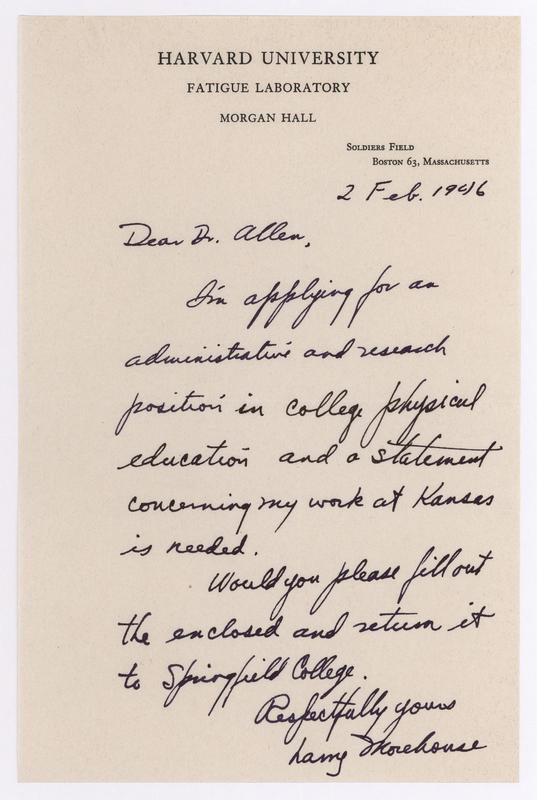 HARVARD UNIVERSITY
FATIGUE LABORATORY
MORGAN HALL
SOLDIERS FIELD
BOSTON 63, MASSACHUSETTS
2 Feb. 1946
Dear Dr. Allen,
I'm applying for an
administrative and research
position in college physical
education and a statement
concerning my work at Kansas
is needed.
Would you please fill out
the enclosed and return it
to Springfield College.
Respectfully yours
Larry Morehouse